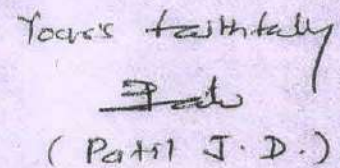 Your's faithfully
( Patil J. D. )